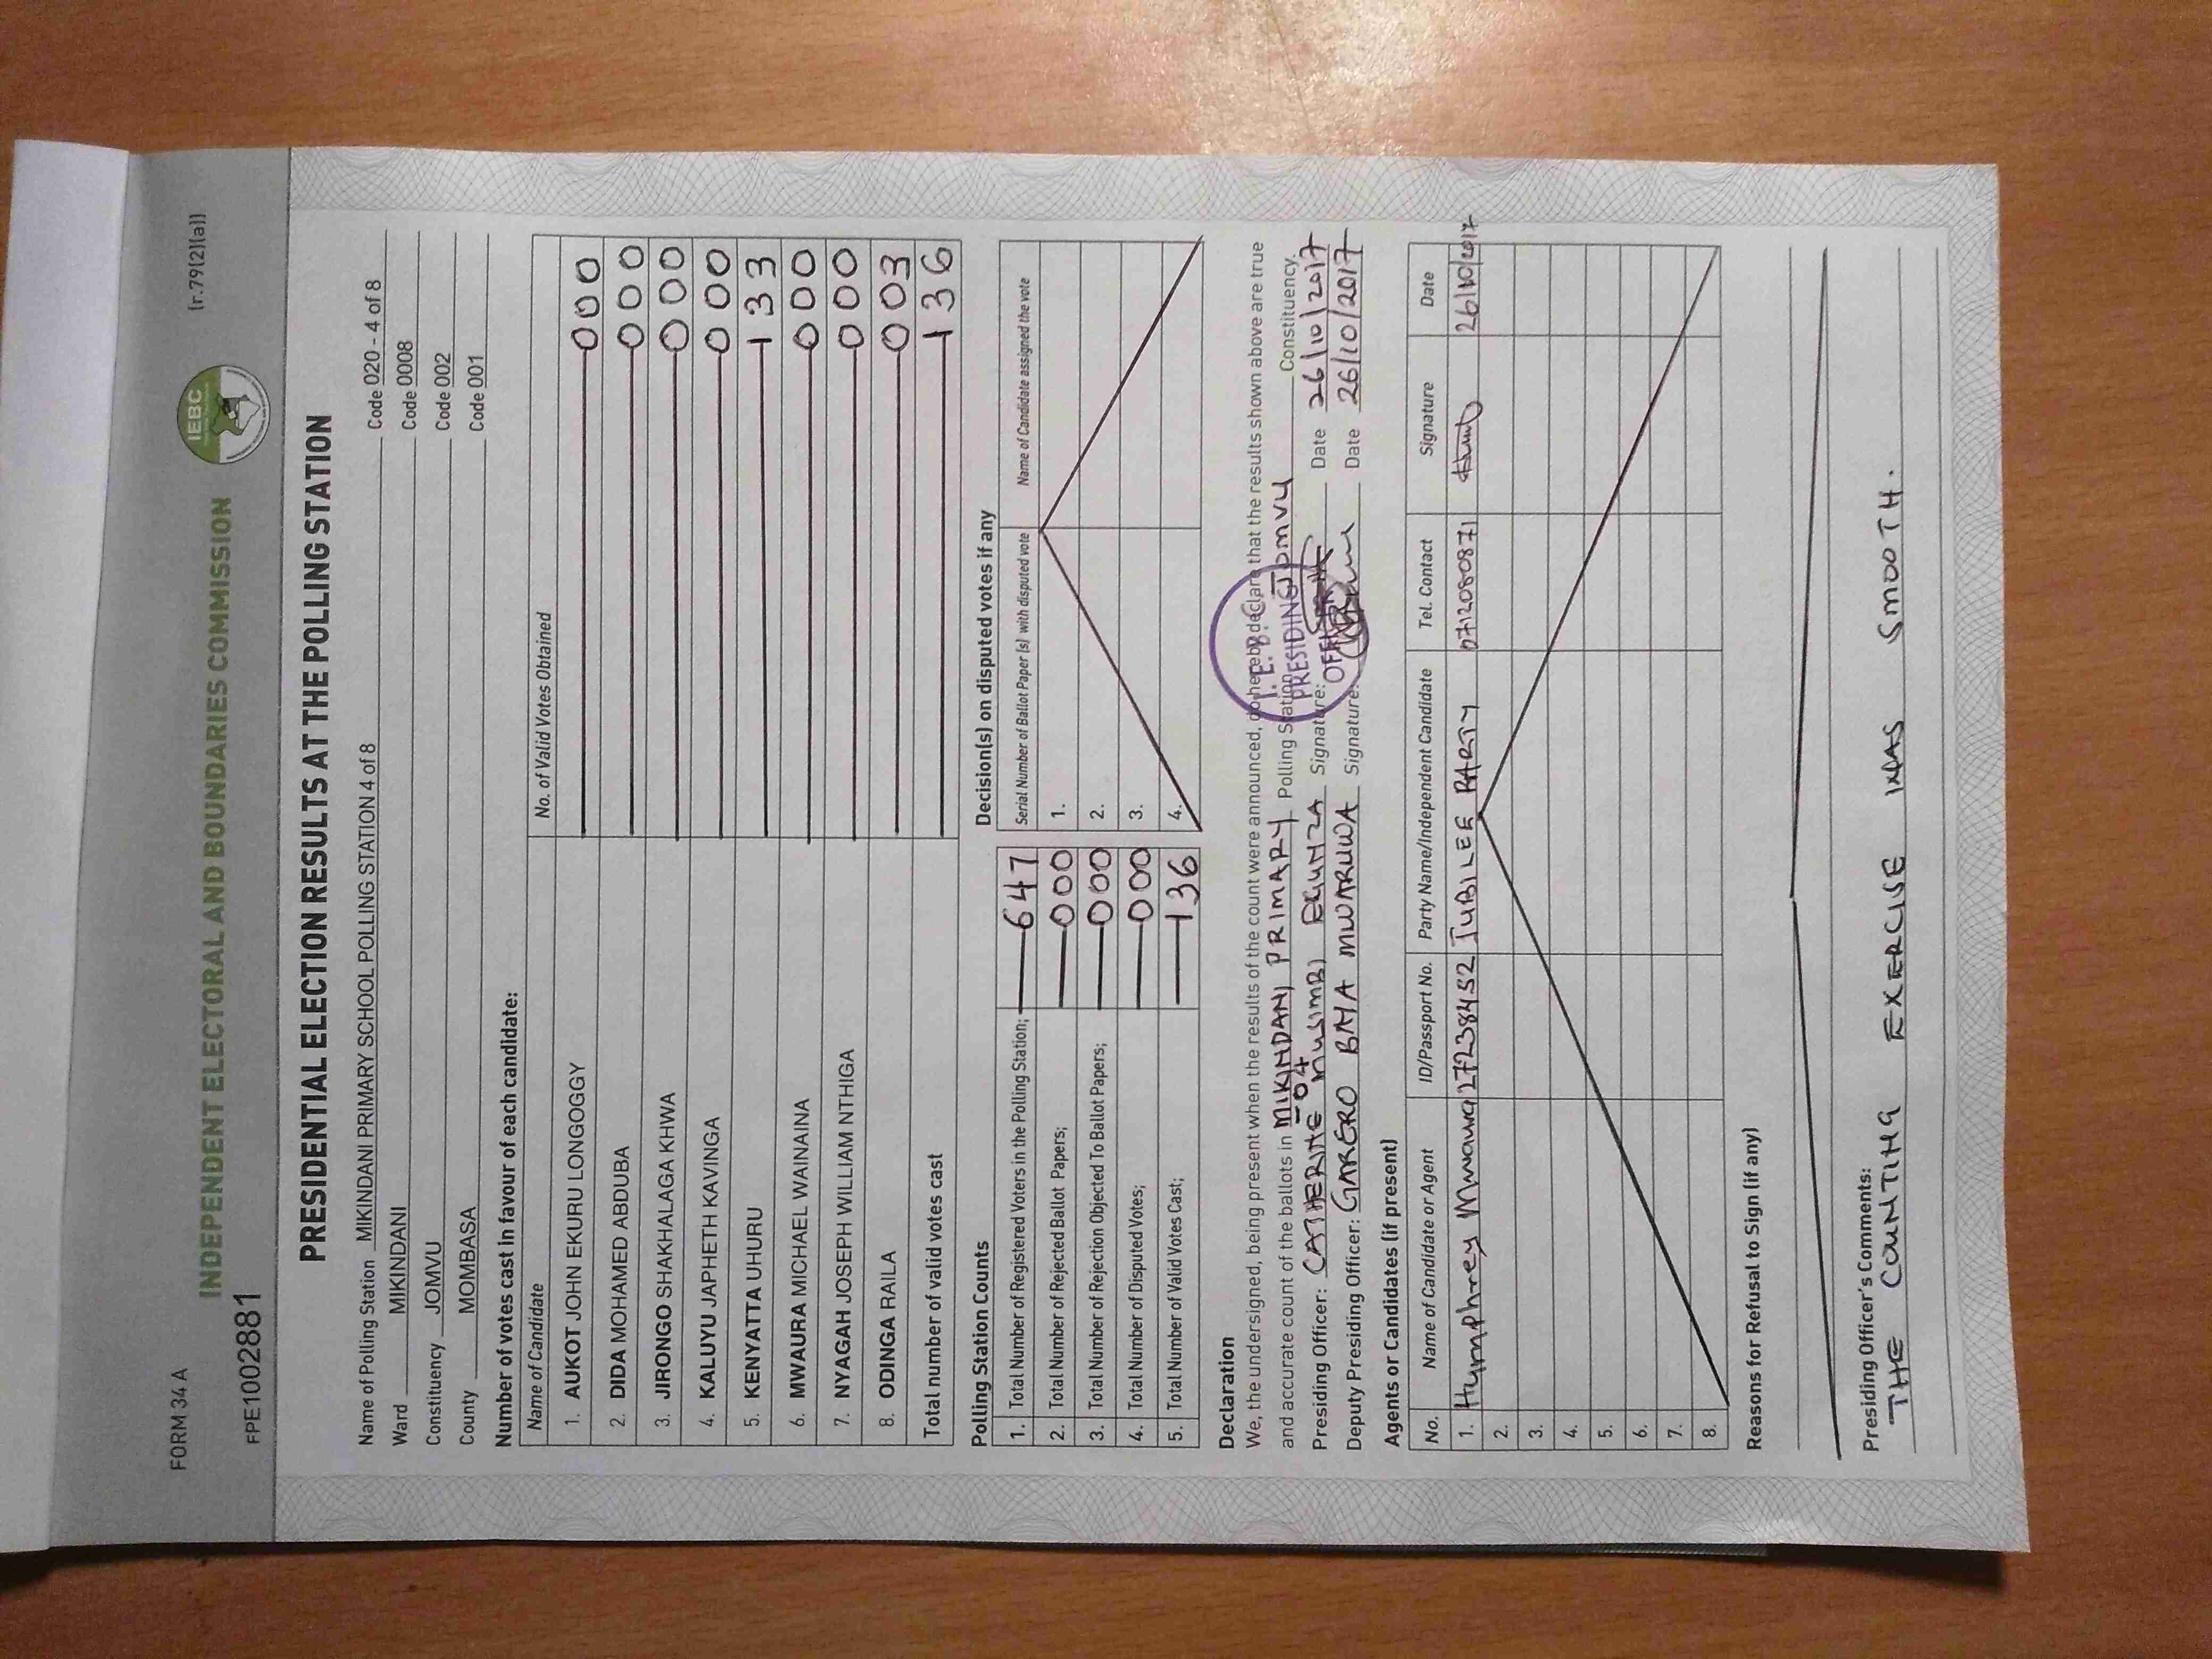 FORM 34 A
(r.79(2)(a))
IEBC
INDEPENDENT ELECTORAL AND BOUNDARIES COMMISSION
FPE1002881
PRESIDENTIAL ELECTION RESULTS AT THE POLLING STATION
Name of Polling Station MIKINDANI PRIMARY SCHOOL POLLING STATION 4 of 8 Code 020 - 4 of 8
Ward MIKINDANI Code 0008
Constituency JOMVU Code 002
County MOMBASA Code 001
Number of votes cast in favour of each candidate:
Name of Candidate No. of Valid Votes Obtained
1. AUKOT JOHN EKURU LONGOGGY 000
2. DIDA MOHAMED ABDUBA 000
3. JIRONGO SHAKHALAGA KHWA 000
4. KALUYU JAPHETH KAVINGA 000
5. KENYATTA UHURU 133
6. MWAURA MICHAEL WAINAINA 000
7. NYAGAH JOSEPH WILLIAM NTHIGA 000
8. ODINGA RAILA 003
Total number of valid votes cast 136
Polling Station Counts
1. Total Number of Registered Voters in the Polling Station; 647
2. Total Number of Rejected Ballot Papers; 000
3. Total Number of Rejection Objected To Ballot Papers; 000
4. Total Number of Disputed Votes; 000
5. Total Number of Valid Votes Cast; 136
Decision(s) on disputed votes if any
Serial Number of Ballot Paper (s) with disputed vote Name of Candidate assigned the vote
1.
2.
3.
4.
Declaration
We, the undersigned, being present when the results of the count were announced, do hereby declare that the results shown above are true
and accurate count of the ballots in MIKINDANI PRIMARY - 04 Polling Station JOMVU Constituency.
Presiding Officer: CATHERINE MUSIMBI EGUNZA Signature: Date 26/10/2017
Deputy Presiding Officer: GARERO BHA MWARUWA Signature: Date 26/10/2017
I.E.B.C
PRESIDING
OFFICER
Agents or Candidates (if present)
No. Name of Candidate or Agent ID/Passport No. Party Name/Independent Candidate Tel. Contact Signature Date
1. Humphrey Mwawa 27238452 JUBILEE PARTY 0712080871 26/10/2017
2.
3.
4.
5.
6.
7.
8.
Reasons for Refusal to Sign (if any)
Presiding Officer's Comments:
THE COUNTING EXERCISE WAS SMOOTH.